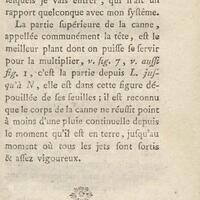 lesquels je vais entrer, qui n'ait un
rapport quelconque avec mon ſyſtême.
La partie ſupérieure de la canne,
appellée communément la tête, eſt le
meilleur plant dont on puiſſe ſe ſervir
pour la multiplier, v. fig. 7, v. auſſi
fig. 1, c'eſt la partie depuis L. juſ-
qu'à N, elle eſt dans cette figure dé-
pouillée de ſes feuilles; il eſt reconnu
que le corps de la canne ne réuſſit point
à moins d'une pluie continuelle depuis
le moment qu'il eſt en terre, juſqu'au
moment où tous les jets ſont ſortis
& aſſez vigoureux.